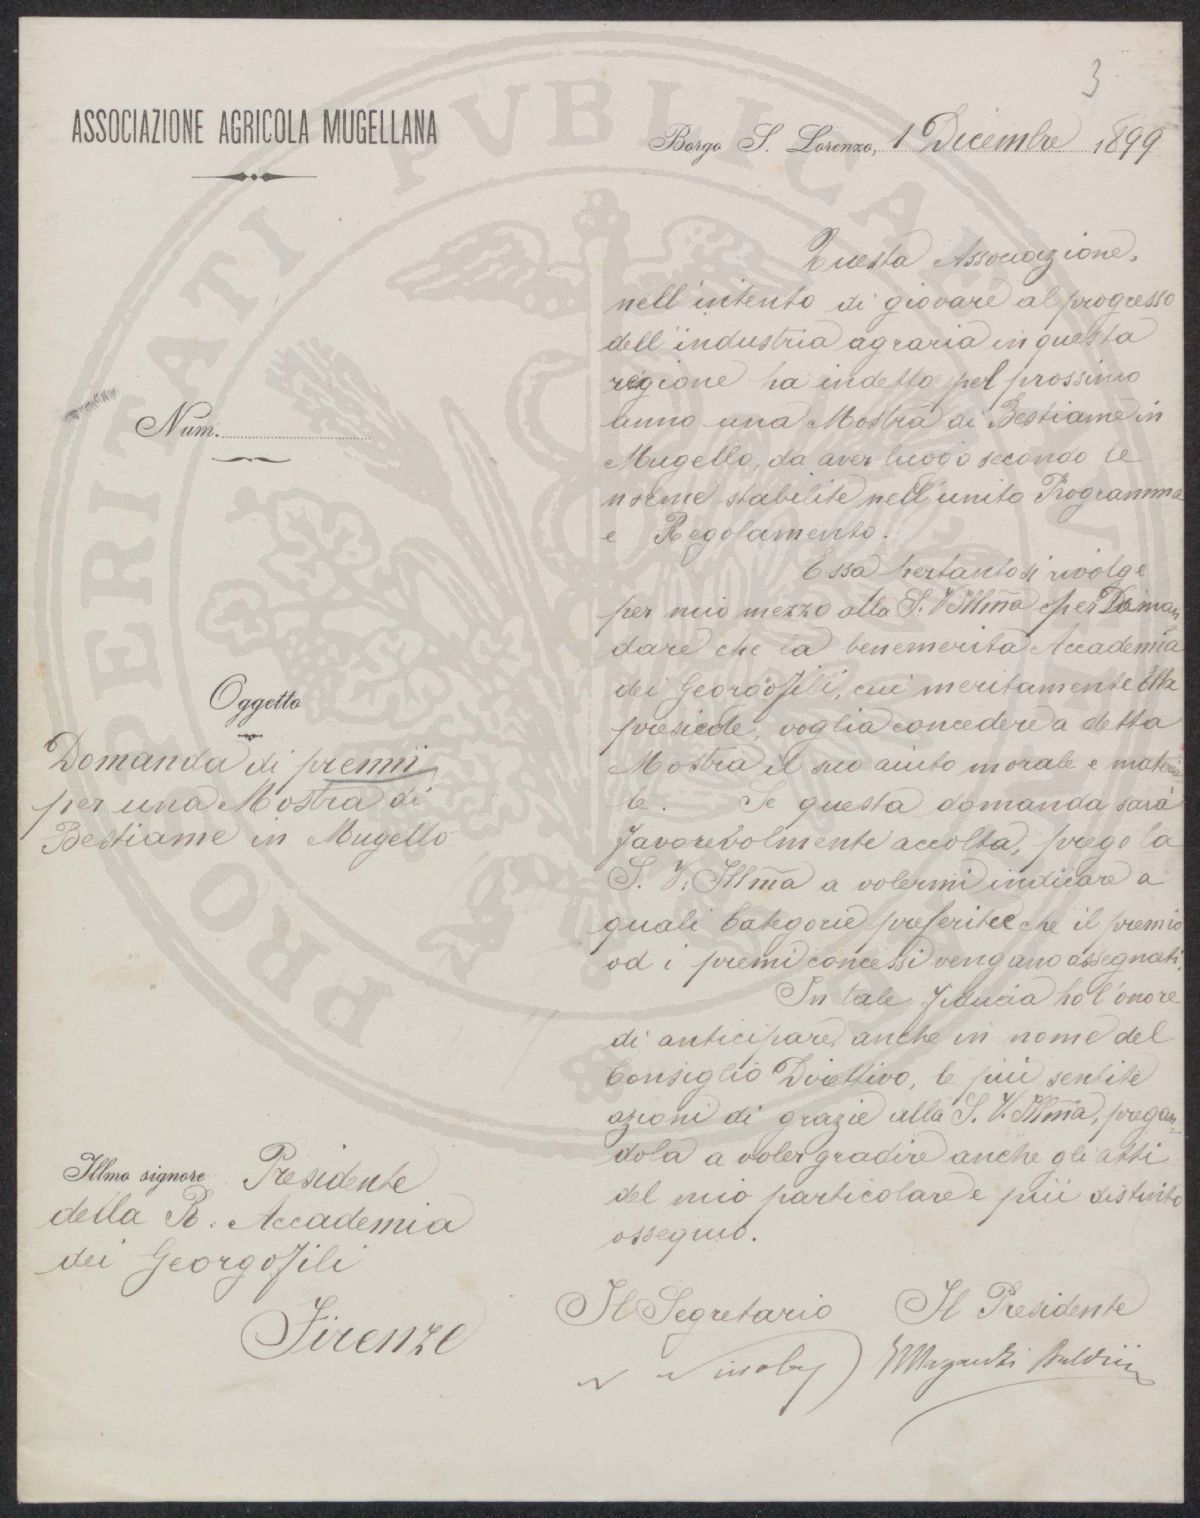 3
ASSOCIAZIONE AGRICOLA MUGELLANA
Borgo S. Lorenzo, 1 Dicembre 1899
Num.
Oggetto
Domanda di premii
per una Mostra di
Bestiame in Mugello
Illmo signore Presidente
della R. Accademia
dei Georgofili
Firenze
Questa Associazione,
nell'intento di giovare al progresso
dell'industria agraria in questa
regione ha indetto pel prossimo
anno una Mostra di Bestiame in
Mugello, da aver luogo secondo le
norme stabilite nell'unito Programma
e Regolamento.
Essa pertanto si rivolge
per mio mezzo alla S. V. Illma per Doman
dare che la benemerita Accademia
dei Georgofili, cui meritamente Ella
presiede, voglia concedere a detta
Mostra il suo aiuto morale e materia
le. Se questa domanda sarà
favorevolmente accolta, prego la
S. V. Illma a volermi indicare a
quali Categorie preferisce che il premio
od i premi concessi vengano assegnati.
In tale fiducia ho l'onore
di anticipare, anche in nome del
Consiglio Direttivo, le più sentite
azioni di grazie alla S. V. Illma, pregan=
dola a voler gradire anche gli atti
del mio particolare e più distinto
ossequio.
Il Segretario
Il Presidente
PROSPERITATI PUBLICAE